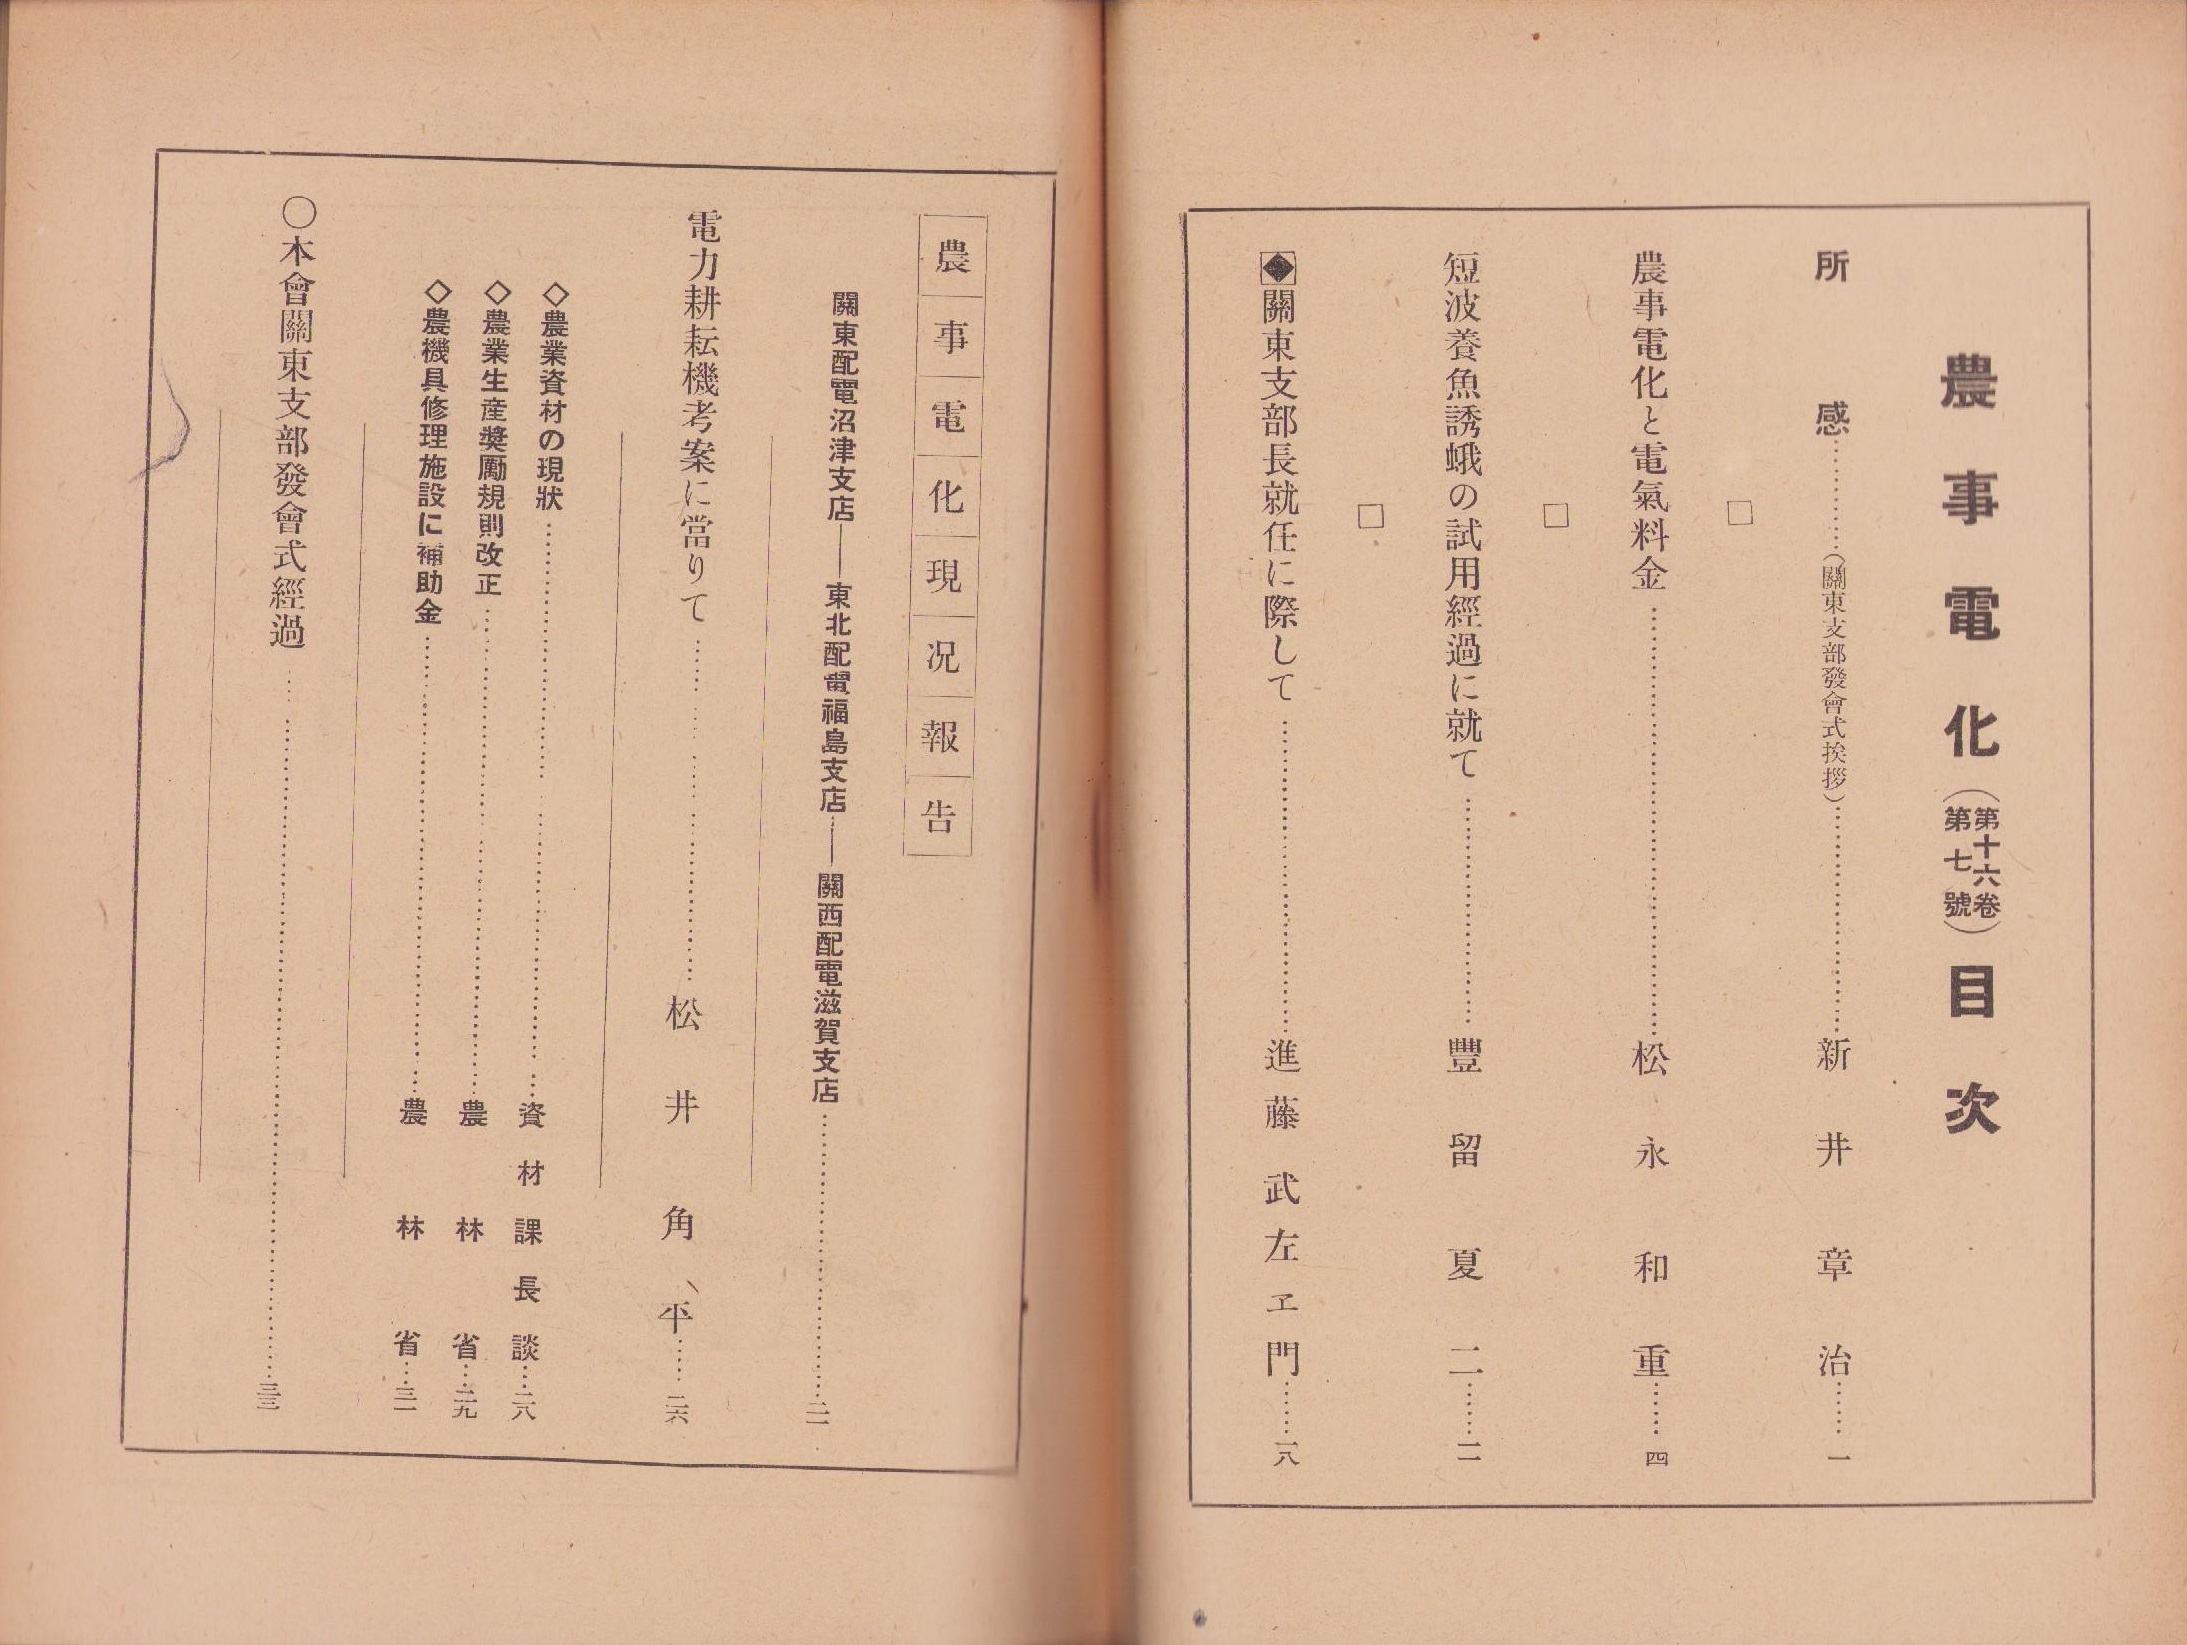 農事電化（第十六卷第七號）目次
所感…………（關東支部發會式挨拶）…………新井章治……一
農事電化と電氣料金…………松永和重……四
短波養魚誘蛾の試用經過に就て…………豐留夏二……一一
◆關東支部長就任に際して…………進藤武左ヱ門……一八
農事電化現況報告
關東配電沼津支店――東北配電福島支店――關西配電滋賀支店…………二一
電力耕耘機考案に當りて…………松井角平……二六
◇農業資材の現狀…………資材課長談……二八
◇農業生産奬勵規則改正…………農林省……二九
◇農機具修理施設に補助金…………農林省……三一
〇本會關東支部發會式經過…………三三